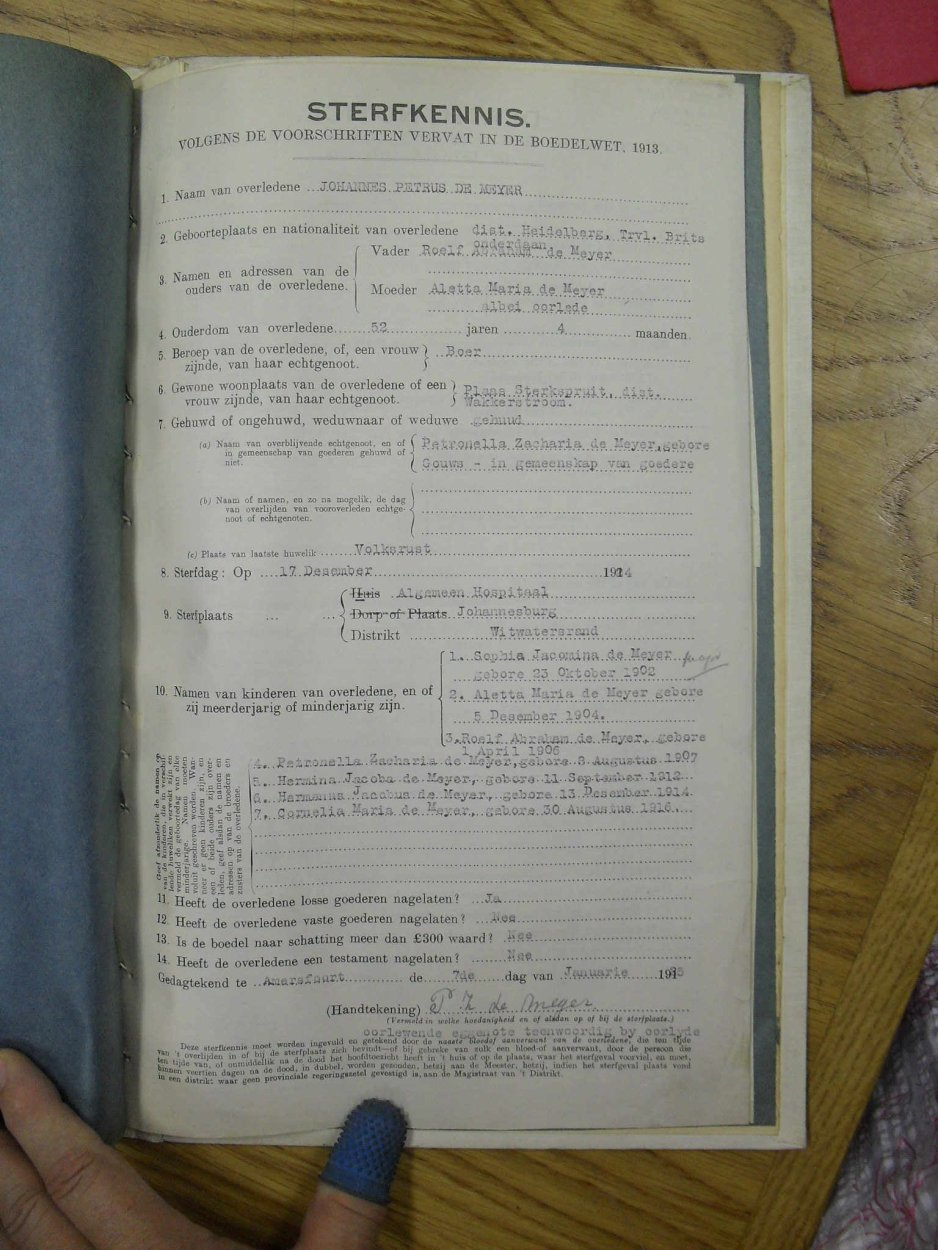 STERFKENNIS.
VOLGENS DE VOORSCHRIFTEN VERVAT IN DE BOEDELWET, 1913.
1. Naam van overledene JOHANNES PETRUS DE MEYER
2. Geboorteplaats en nationaliteit van overledene dist. Heidelberg, Trvl. Brits
onderdaan
3. Namen en adressen van de ouders van de overledene.
Vader Roelf Abraham de Meyer
Moeder Aletta Maria de Meyer
albei oorlede
4. Ouderdom van overledene 52 jaren 4 maanden.
5. Beroep van de overledene, of, een vrouw
zijnde, van haar echtgenoot. Boer
6. Gewone woonplaats van de overledene of een
vrouw zijnde, van haar echtgenoot.
Plaas Sterkspruit, dist.
Wakkerstroom.
7. Gehuwd of ongehuwd, weduwnaar of weduwe gehuud
(a) Naam van overblijvende echtgenoot, en of
in gemeenschap van goederen gehuwd of
niet.
Petronella Zacharia de Meyer, gebore
Gouws - in gemeenskap van goedere
(b) Naam of namen, en zo na mogelik, de dag
van overlijden van vooroverleden echtge-
noot of echtgenoten.
(c) Plaats van laatste huwelik Volksrust
8. Sterfdag: Op 17 Desember 19 4
9. Sterfplaats
Huis Algemeen Hospitaal
Dorp of Plaats Johannesburg
Distrikt Witwatersrand
10. Namen van kinderen van overledene, en of
zij meerderjarig of minderjarig zijn.
1. Sophia Jacomina de Meyer
gebore 23 Oktober 1902
2. Aletta Maria de Meyer gebore
5 Desember 1904.
3. Roelf Abraham de Meyer, gebore
1 April 1906
4. Petronella Zacharia de Meyer, gebore 8 Augustus 1907
5. Hermina Jacoba de Meyer, gebore 11 September 1912
6. Hermanus Jacobus de Meyer, gebore 13 Desember 1914
7. Cornelia Maria de Meyer, gebore 30 Augustus 1916
Geef afzonderlik de namen op
van de kinderen, die in verschil-
lende huweliken verwekt zijn en
vermeld de geboortedag van elke
minderjarige. Namen moeten
voluit geschreven worden. Wan-
neer er geen kinderen zijn, en
een of beide ouders zijn over-
leden, geef alsdan de namen en
adressen op van de broeders en
zusters van de overledene.
11. Heeft de overledene losse goederen nagelaten? Ja
12. Heeft de overledene vaste goederen nagelaten? Nee
13. Is de boedel naar schatting meer dan £300 waard? Nee
14. Heeft de overledene een testament nagelaten? Nee
Gedagtekend te Amersfoort de 7de dag van Januarie 19
(Handtekening) P Z de Meyer
(Vermeld in welke hoedanigheid en of alsdan op of bij de sterfplaats.)
oorlewende eggenote teenwoordig by oorlyde
Deze sterfkennis moet worden ingevuld en getekend door de naaste bloedof aanverwant van de overledene, die ten tijde
van 't overlijden in of bij de sterfplaats zich bevindt—of bij gebreke van zulk een bloed-of aanverwant, door de persoon die
ten tijde van, of onmiddellik na de dood het hoofdtoezicht heeft in 't huis of op de plaats, waar het sterfgeval voorviel, en moet,
binnen veertien dagen na de dood, in dubbel, worden gezonden, hetzij aan de Meester, hetzij, indien het sterfgeval plaats vond
in een distrikt waar geen provinciale regeringszetel gevestigd is, aan de Magistraat van 't Distrikt.